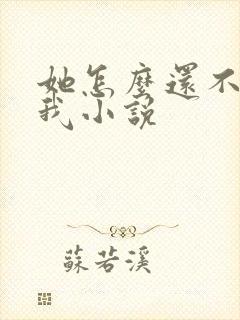 她怎麼還不
我小說
蘇若溪